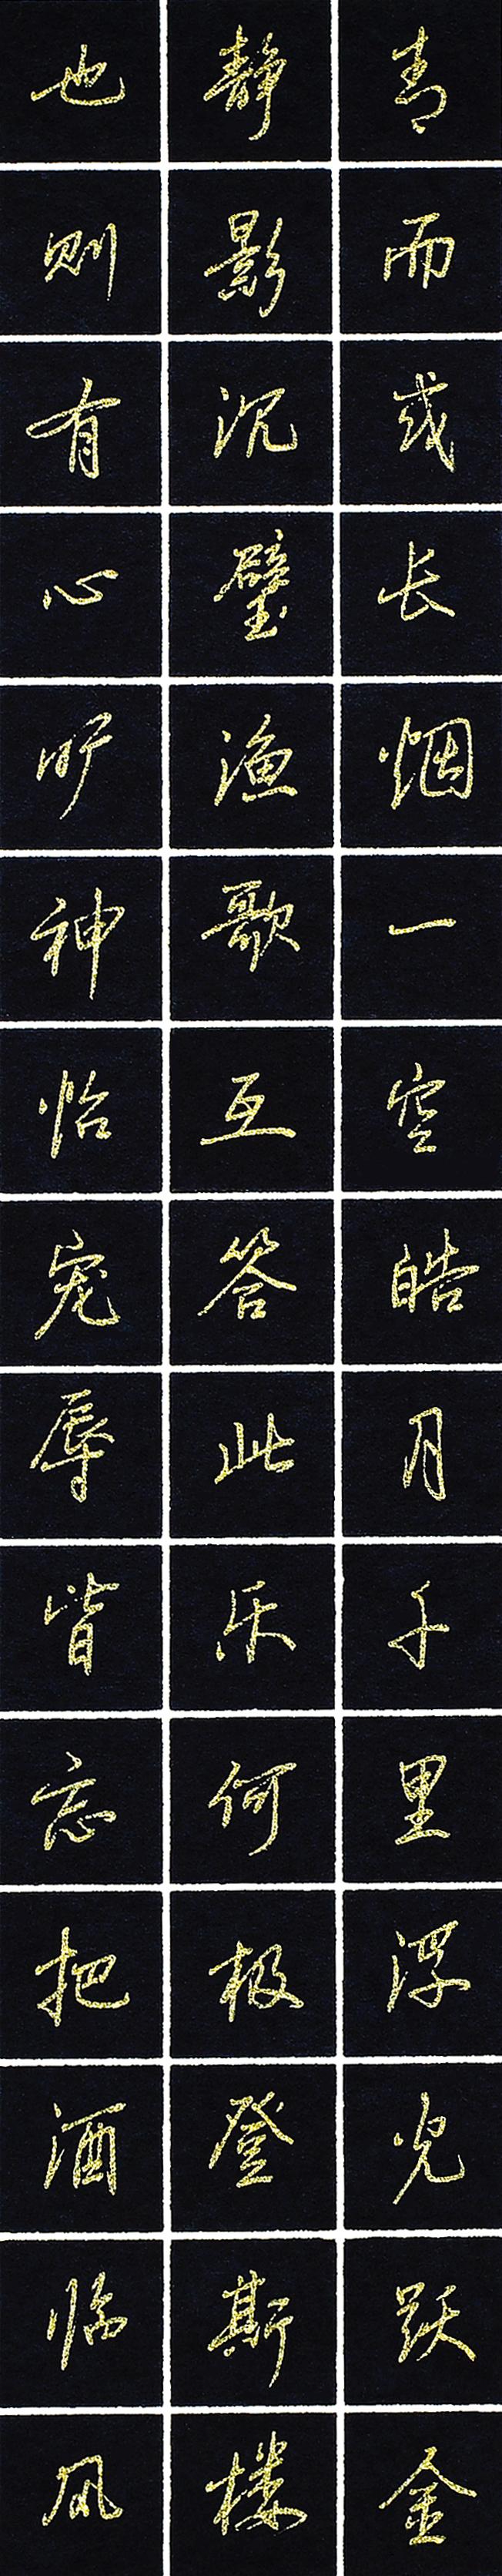 青而或长烟一空皓月千里浮光跃金
静影沉璧渔歌互答此乐何极登斯楼
也则有心旷神怡宠辱皆忘把酒临风